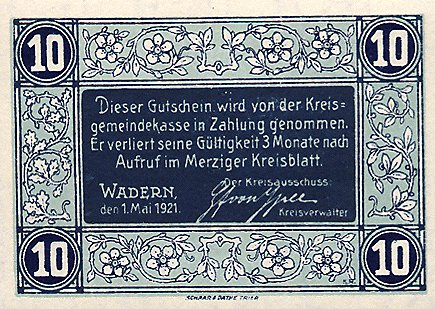 10 10
Dieser Gutschein wird von der Kreis=
gemeindekasse in Zahlung genommen.
Er verliert seine Gültigkeit 3 Monate nach
Aufruf im Merziger Kreisblatt.
WADERN, Der Kreisausschuss:
den 1. Mai 1921.
Kreisverwalter
10 10
SCHAAR & DATHE TRIER